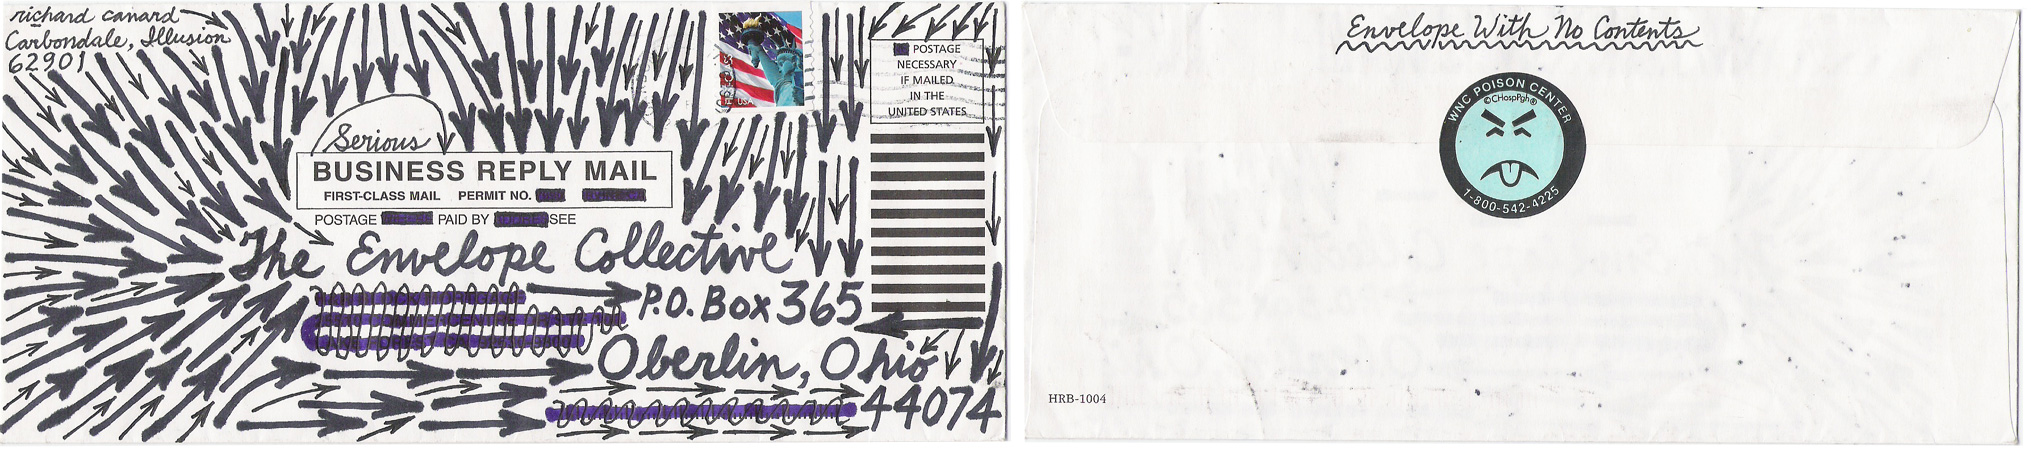 richard canard
Carbondale, Illusion
62901
USA
POSTAGE
NECESSARY
IF MAILED
IN THE
UNITED STATES
Serious
BUSINESS REPLY MAIL
FIRST-CLASS MAIL PERMIT NO.
POSTAGE PAID BY SEE
The Envelope Collective
P.O. Box 365
Oberlin, Ohio
44074
Envelope With No Contents
WNC POISON CENTER
©CHospPgh®
1-800-542-4225
HRB-1004